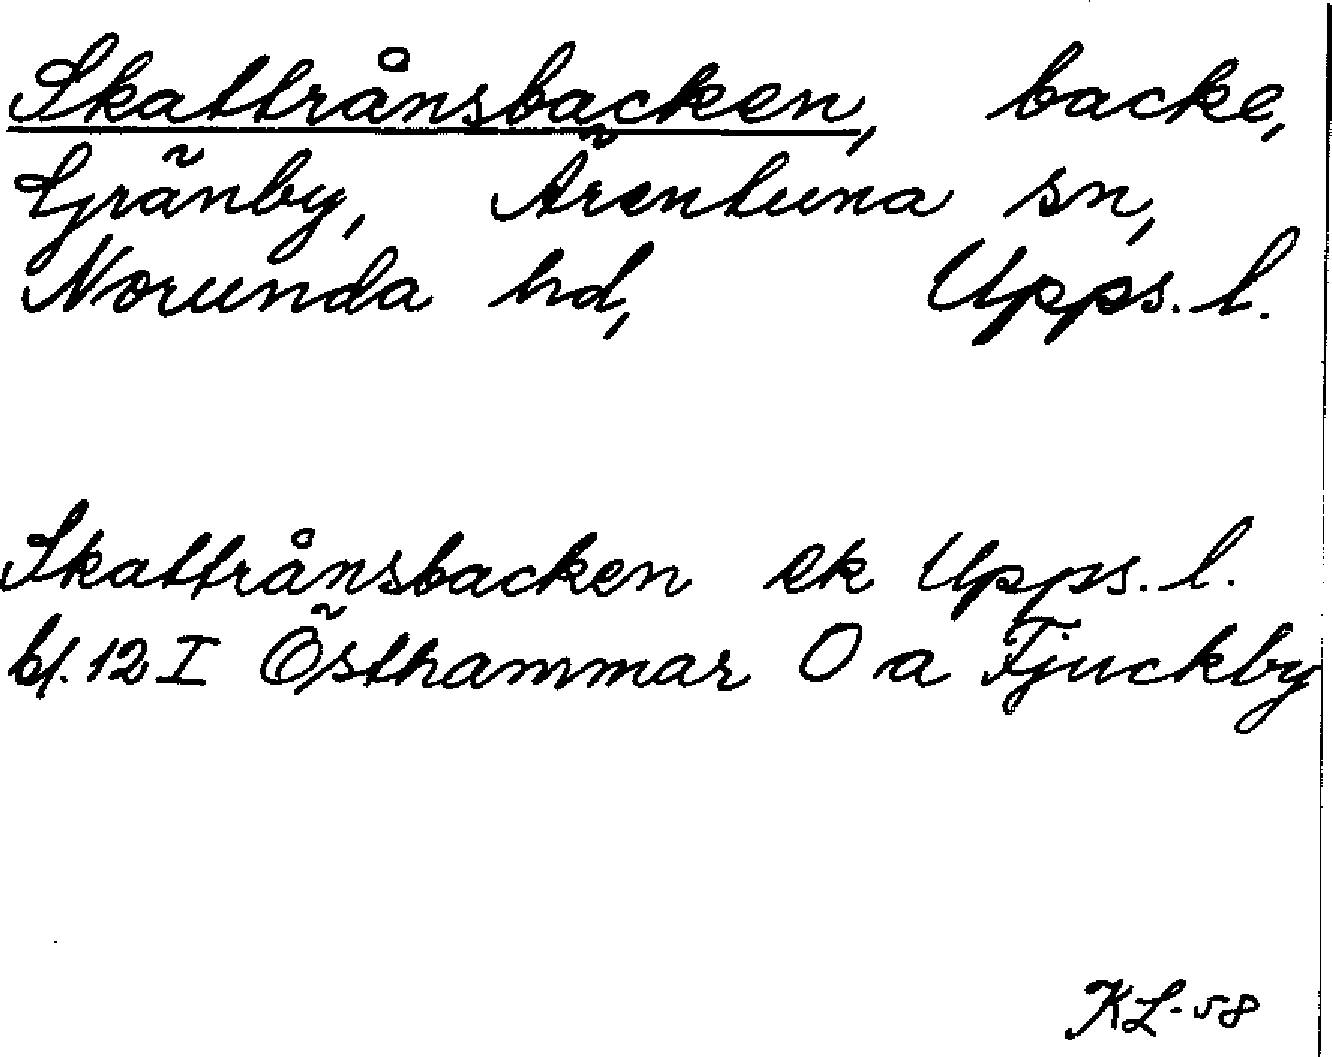 Skattrånsbacken, backe,
Gränby, Ärentuna sn,
Norunda hd, Upps. l.
Skattrånsbacken ek Upps. l.
bl. 12 I Östhammar O a Fjuckby
KL-58